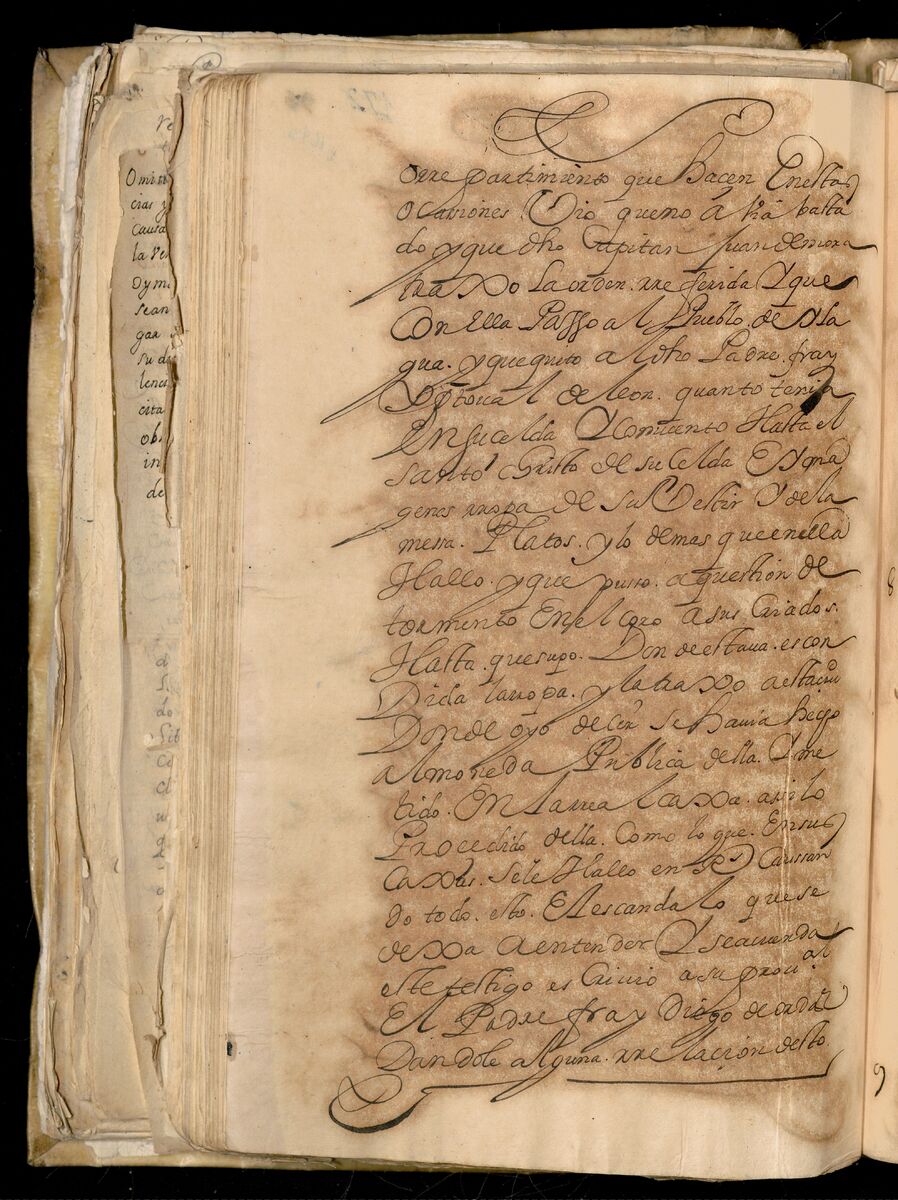 orre partimiento que hacen En esta
ocassiones. Vio que no a vía basta
do y que dho Capitan Juan de mora
traxo La orden. rre ferida Y que
Con Ella Passo al Pueblo de
gua. y que quito a l dho Padre fray
Xptoual de leon. quanto tenia
En su celda Y Conuento Hasta el
santo Cristo de su Celda E Yma
genes rropa de su Vestir Y de la
messa. Platos. y lo demas que en ella
Hallo. y que pusso. a question de
tormento En el coro a sus Criados.
Hasta. que supo. Don de estaua. escon
Dida la rropa. y la traxo a esta
Donde oyo decir se hauia hecho
almoneda Publica della. Y me
tido. En la rreal caxa. assi lo
Procedido della. Como lo que. En sus
Caxas. sele Hallo en Rs Caussan
do todo. esto. El escandalo que se
dexa a entender Y se acuerda
este testigo es Criuio a su prouial
El Padre fray Diego de ordaz
Dandole alguna. rre lacion desto.
Omisi
cias y
Causa
la Ve
Oyma
sean
gar
su d
lenci
cita
obs
in
de